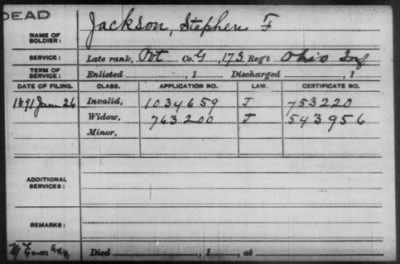 DEAD
NAME OF SOLDIER: Jackson, Stephen F
SERVICE: Late rank, Pvt Co. G, 173 Reg't Ohio Inf
TERM OF SERVICE: Enlisted , 1 Discharged , 1
DATE OF FILING. CLASS. APPLICATION NO. LAW. CERTIFICATE NO.
1891 Jan 26 Invalid, 1034659 J 753220
Widow, 763200 J 543956
Minor,
ADDITIONAL SERVICES:
REMARKS:
Died , 1 , at